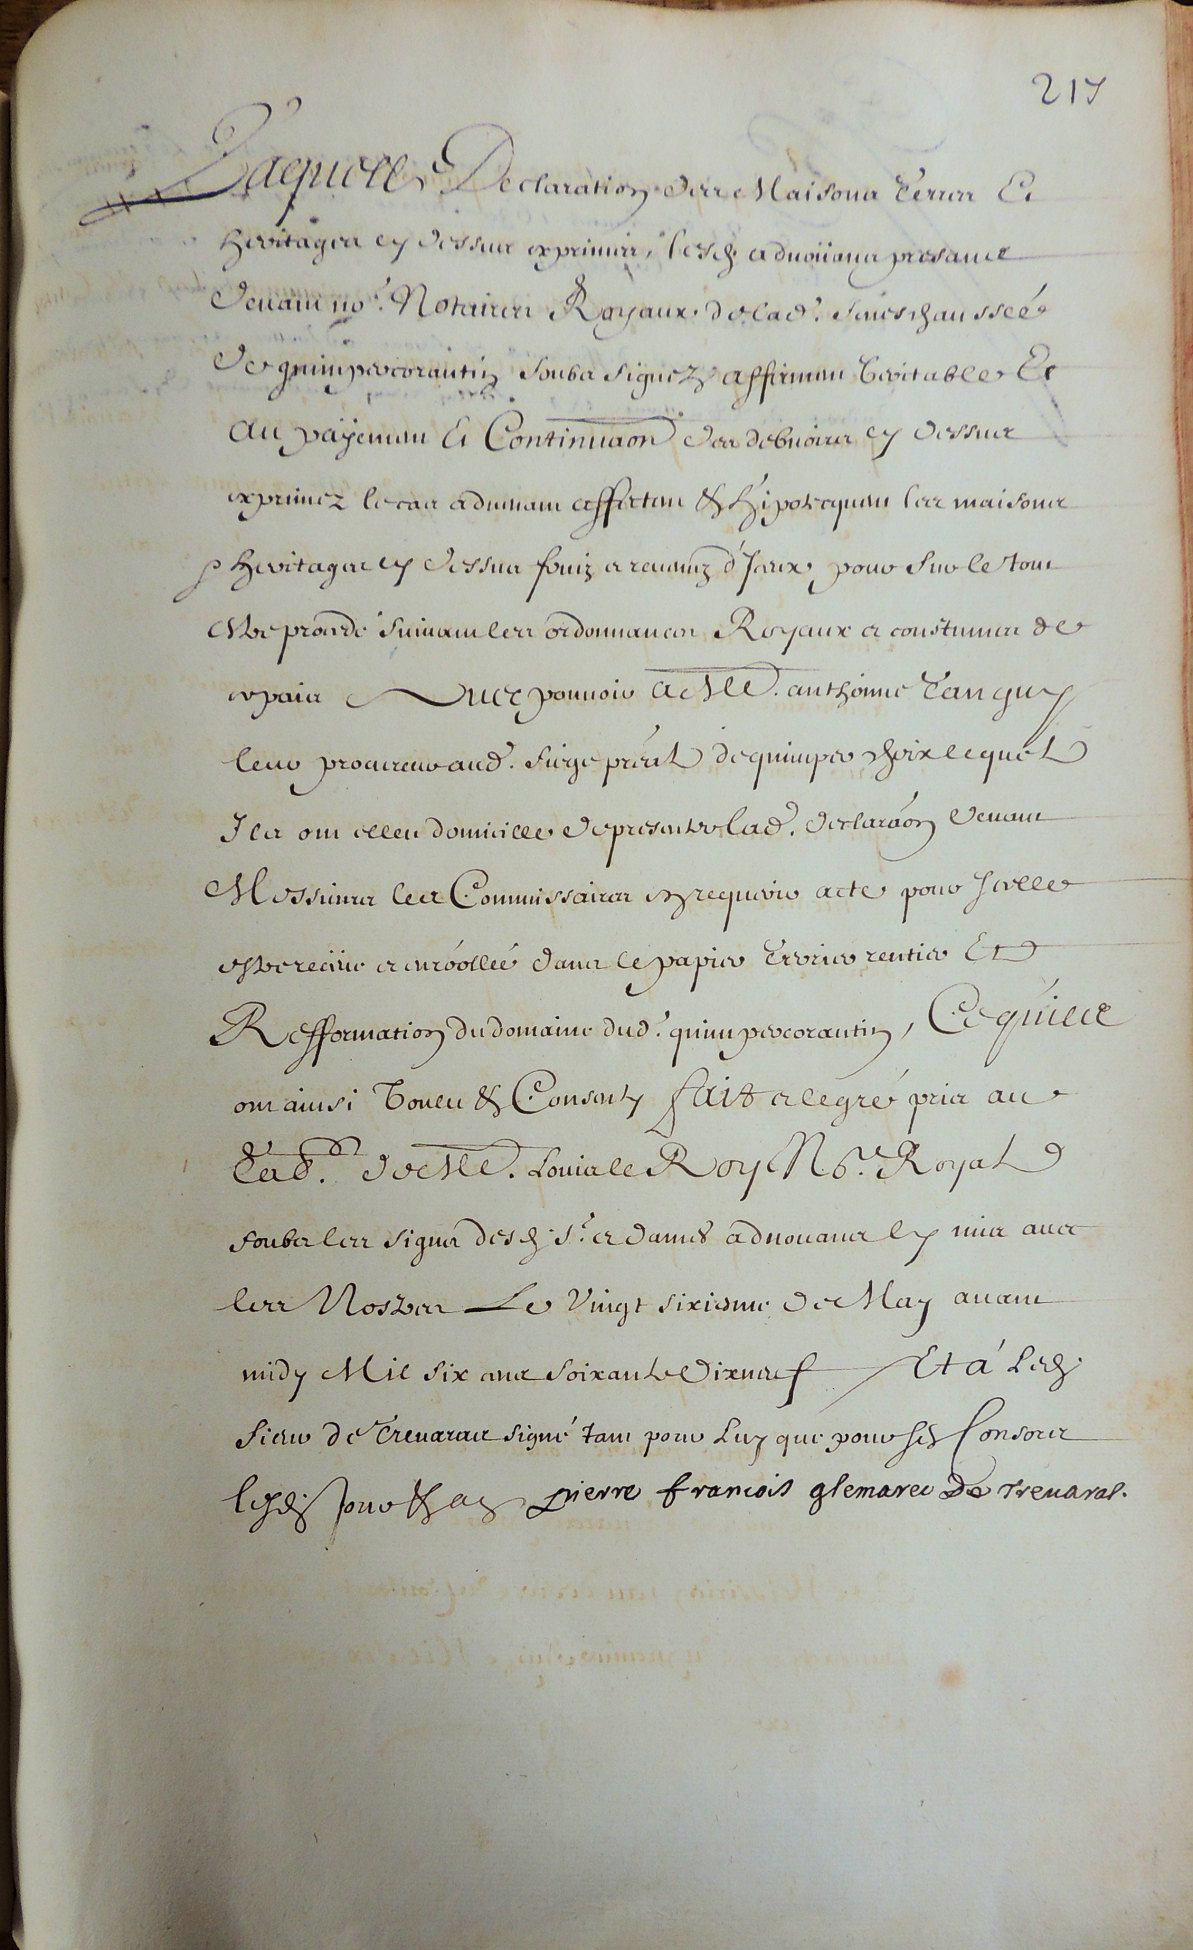 217
Laquelle Declaration des Maisons Terres Et
heritages cy dessus exprimés, lesd. advoüans presans
devant nos. Notaires Royaux de lad. Seneschaussée
de quimpercorantin soubs signez affirment veritable Et
Au payement Et Continuaon des debvoirs cy dessus
exprimez lesds advouans affectent & hipotequent les maisons
heritages cy dessus fruiz et revenuz d'Iceux pour sur le tout
estre procedé suivant les ordonnances Royaux et coustumes de
ce pais Avec pouvoir a Me. anthoinne Tanguy
leur procureur aud. siege pñal de quimper chez lequel
Ils ont esleu domicille de presenter lad. declaraon devant
Messieurs les Commissaires en requerir acte pour Icelle
estre reciue et enroollée dans le papier terrier rentier Et
Refformation du domaine dud. quimpercorantin, Ce qu'ils
ont ainsi voulu & Consenty fait et le gré pris au
Tab. de Me. Louis le Roy No.re Royal
soubs les signes desd. sr. et dames advouans y mis avec
les Nostres Le Vingt sixiesme de May avant
midy Mil six cens soixante dixneuf Et a Led.
sieur de Trevaras signé tant pour Luy que pour ses Consors
lesd. jour & an pierre francois glemarec De Trevaras.